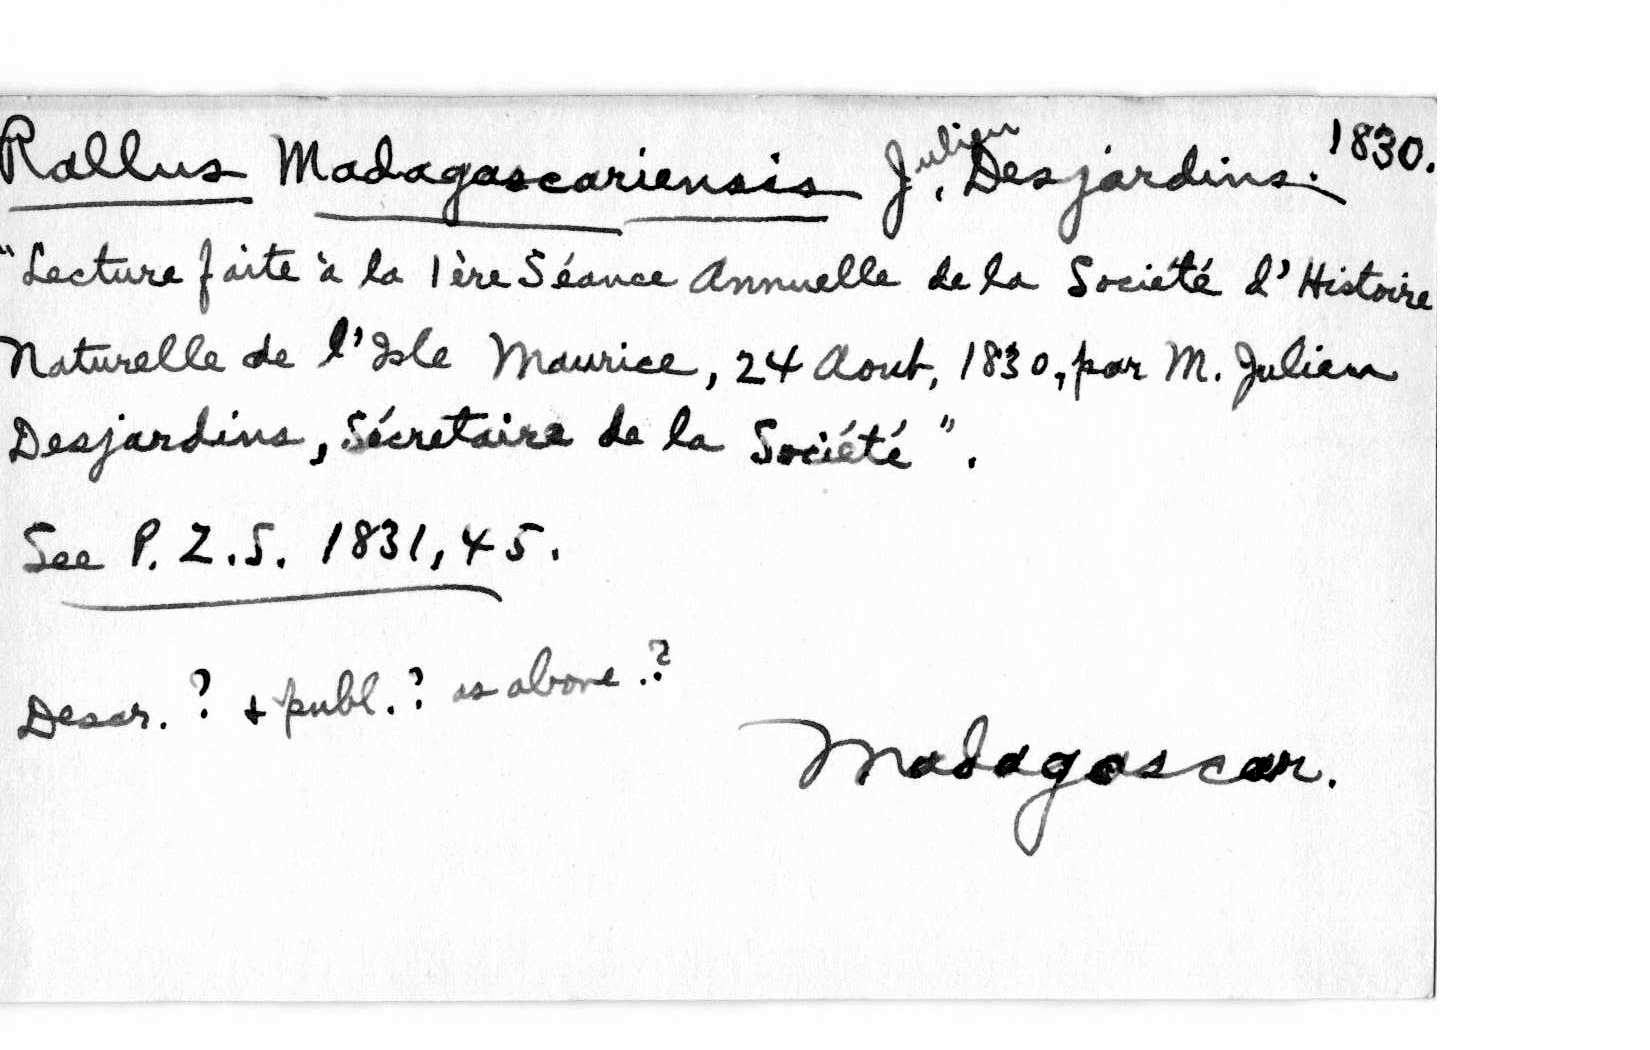 Rallus Madagascariensis J. Julien Desjardins. 1830.
"Lecture faite à la 1ère Séance Annuelle de la Société d'Histoire
Naturelle de l'Isle Maurice, 24 Aout, 1830, par M. Julien
Desjardins, Sécretaire de la Société".
See P. Z. S. 1831, 45.
Descr. ? + publ. ? as above. ?
Madagascar.